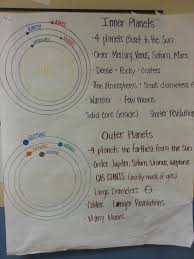 Inner Planets
EARTH
MARS
• 4 planets closest to the Sun
• Order: Mercury, Venus, Saturn, Mars
• Dense • Rocky • Craters
• Thin Atmospheres • Small diameters
• Warmer • Few moons
• Solid Core • Shorter Revolution
Outer Planets
NEPTUNE
SATURN
• 4 planets the farthest from the Sun
• Order: Jupiter, Saturn, Uranus, Neptune
• GAS GIANTS (mostly made of gas)
• Large Diameters
• Colder • Longer Revolutions
• Many Moons